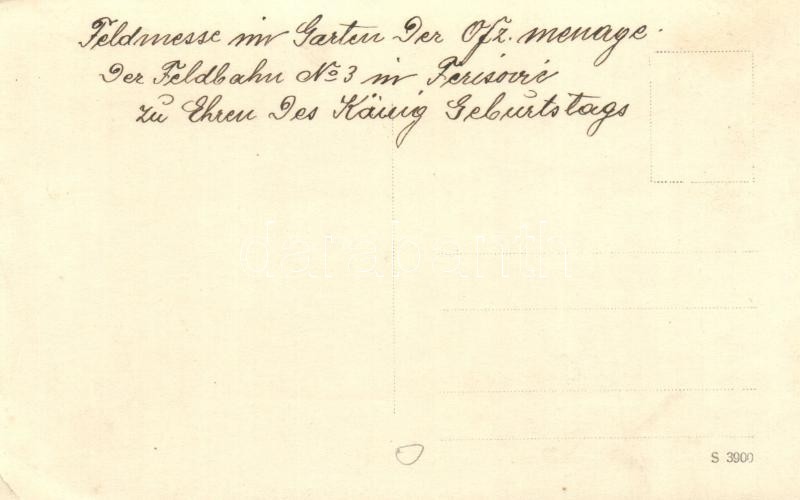 Feldmesse im Garten Der Ofz. menage.
Der Feldbahn No 3 in Ferisović
zu Ehren Des Käinig Geburtstags
darabanth
S 3900